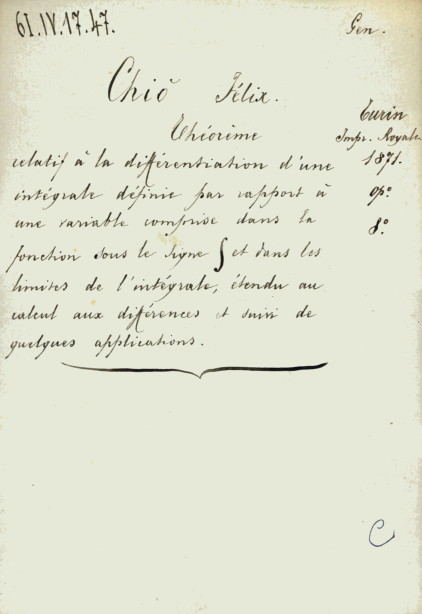 61.IV.17.47.
Gen.
Chiò Félix.
Turin
Théorème
Impr. Royale
relatif à la différentiation d'une
1871.
intégrale définie par rapport à
op:
une variable comprise dans la
8:
fonction sous le signe ∫ et dans les
limites de l'intégrale, étendu au
calcul aux différences et suivi de
quelques applications.
C